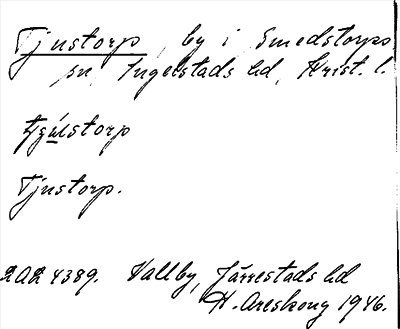 Tjustorp, by i Smedstorps
sn, Ingelstads hd, Krist. l.
Tjustorp.
RAÄ 4389. Vallby, Järrestads hd
H. Areskoug 1946.